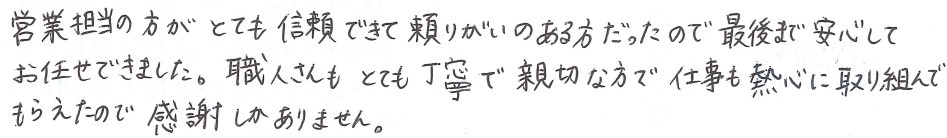 営業担当の方が とても 信頼できて 頼りがいのある方だったので 最後まで 安心して
お任せできました。職人さんも とても 丁寧で 親切な方で 仕事も 熱心に 取り組んで
もらえたので 感謝しかありません。